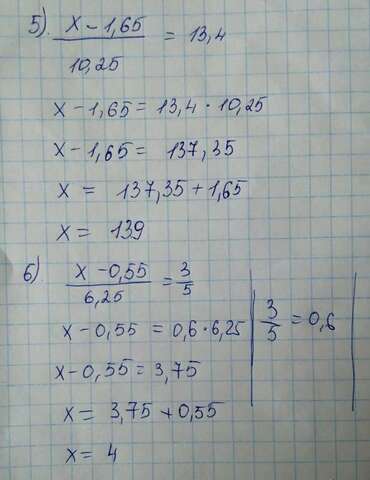 5). x - 1,65 / 10,25 = 13,4
x - 1,65 = 13,4 · 10,25
x - 1,65 = 137,35
x = 137,35 + 1,65
x = 139
6). x - 0,55 / 6,25 = 3/5
3/5 = 0,6
x - 0,55 = 0,6 · 6,25
x - 0,55 = 3,75
x = 3,75 + 0,55
x = 4